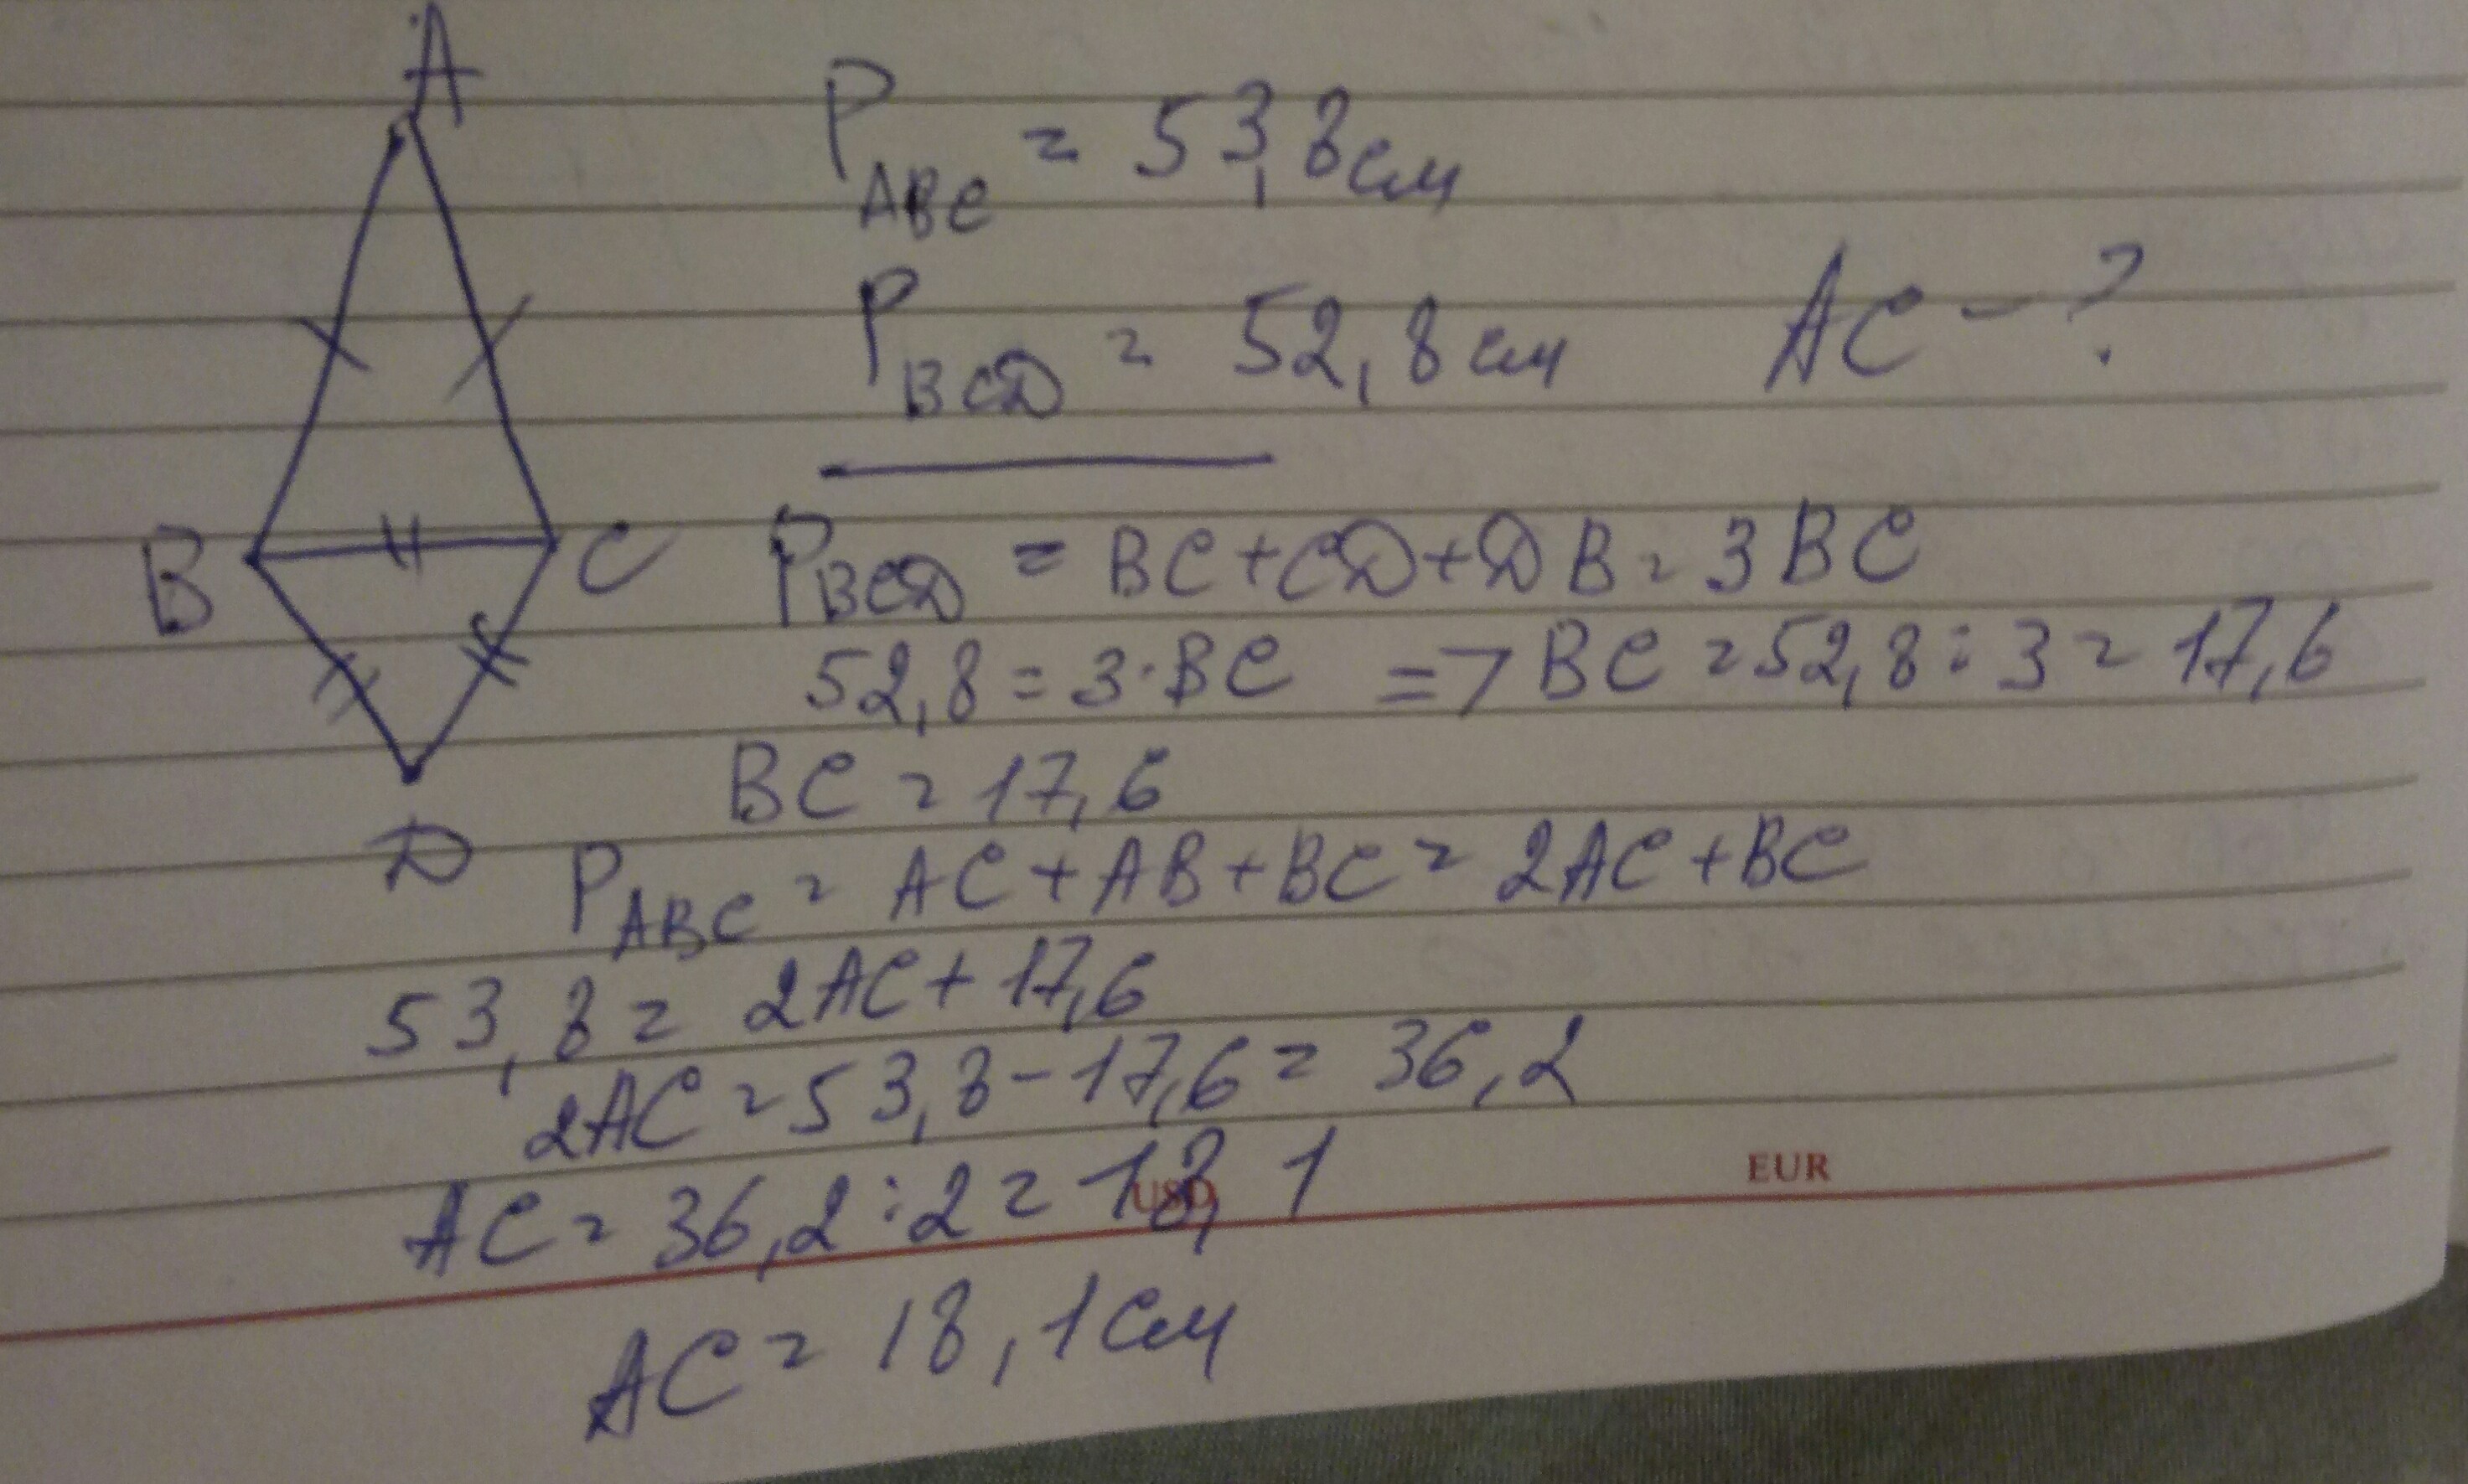 A
P_ABC = 53,8 см
P_BCD = 52,8 см AC - ?
B C
P_BCD = BC + CD + DB = 3BC
52,8 = 3·BC => BC = 52,8 : 3 = 17,6
BC = 17,6
D
P_ABC = AC + AB + BC = 2AC + BC
53,8 = 2AC + 17,6
2AC = 53,8 - 17,6 = 36,2
AC = 36,2 : 2 = 18,1
USD EUR
AC = 18,1 см